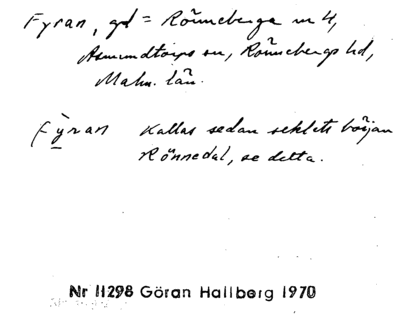 Fyran, gd = Rönneberga nr 4,
Asmundtorps sn, Rönnebergs hd,
Malm. län.
Fỳran kallas sedan seklets början
Rönnedal, se detta.
Nr 11298 Göran Hallberg 1970